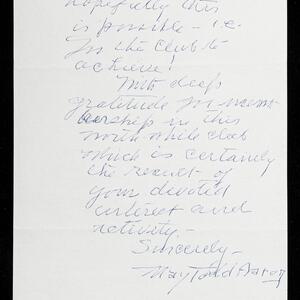 hopefully this
is possible - i.e.
for the club to
achieve!
With deep
gratitude for memb-
ership in this
worth while club
which is certainly
the result of
your devoted
interest and
activity. -
Sincerely -
May